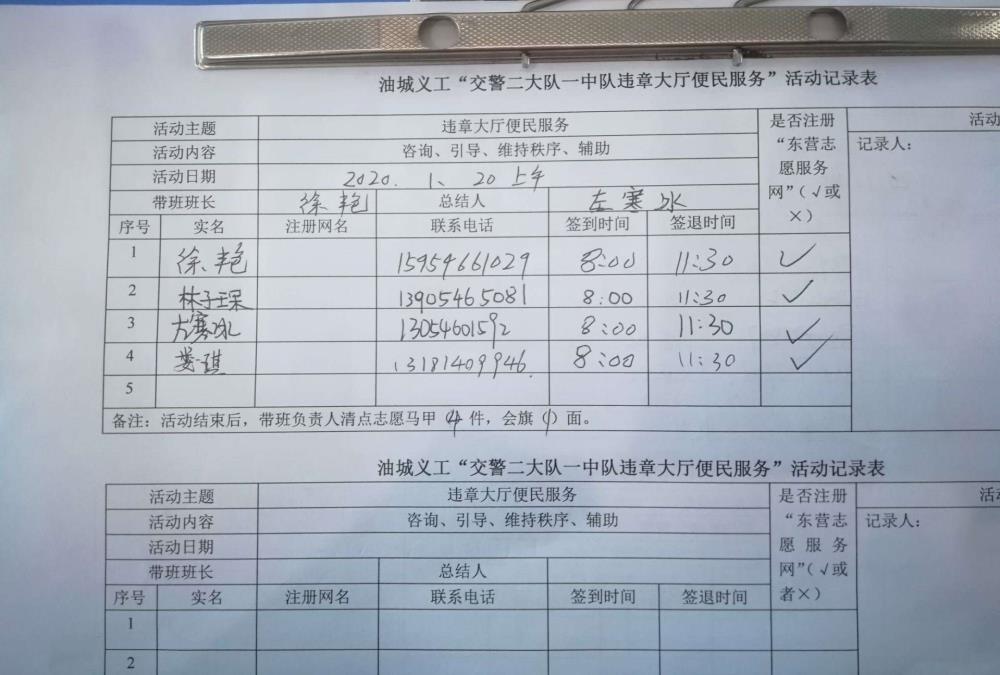 油城义工“交警二大队一中队违章大厅便民服务”活动记录表
活动主题 违章大厅便民服务 是否注册“东营志愿服务网”（√或×） 活动
活动内容 咨询、引导、维持秩序、辅助 记录人：
活动日期 2020. 1、20 上午
带班班长 徐艳 总结人 左寒冰
序号 实名 注册网名 联系电话 签到时间 签退时间
1 徐艳 15954661029 8:00 11:30 ✓
2 林子琛 13905465081 8:00 11:30 ✓
3 左寒冰 13054601592 8:00 11:30 ✓
4 娄琪 13181409946. 8:00 11:30 ✓
5
备注：活动结束后，带班负责人清点志愿马甲（4）件，会旗（1）面。
油城义工“交警二大队一中队违章大厅便民服务”活动记录表
活动主题 违章大厅便民服务 是否注册“东营志愿服务网”（√或者×） 活
活动内容 咨询、引导、维持秩序、辅助 记录人：
活动日期
带班班长 总结人
序号 实名 注册网名 联系电话 签到时间 签退时间
1
2